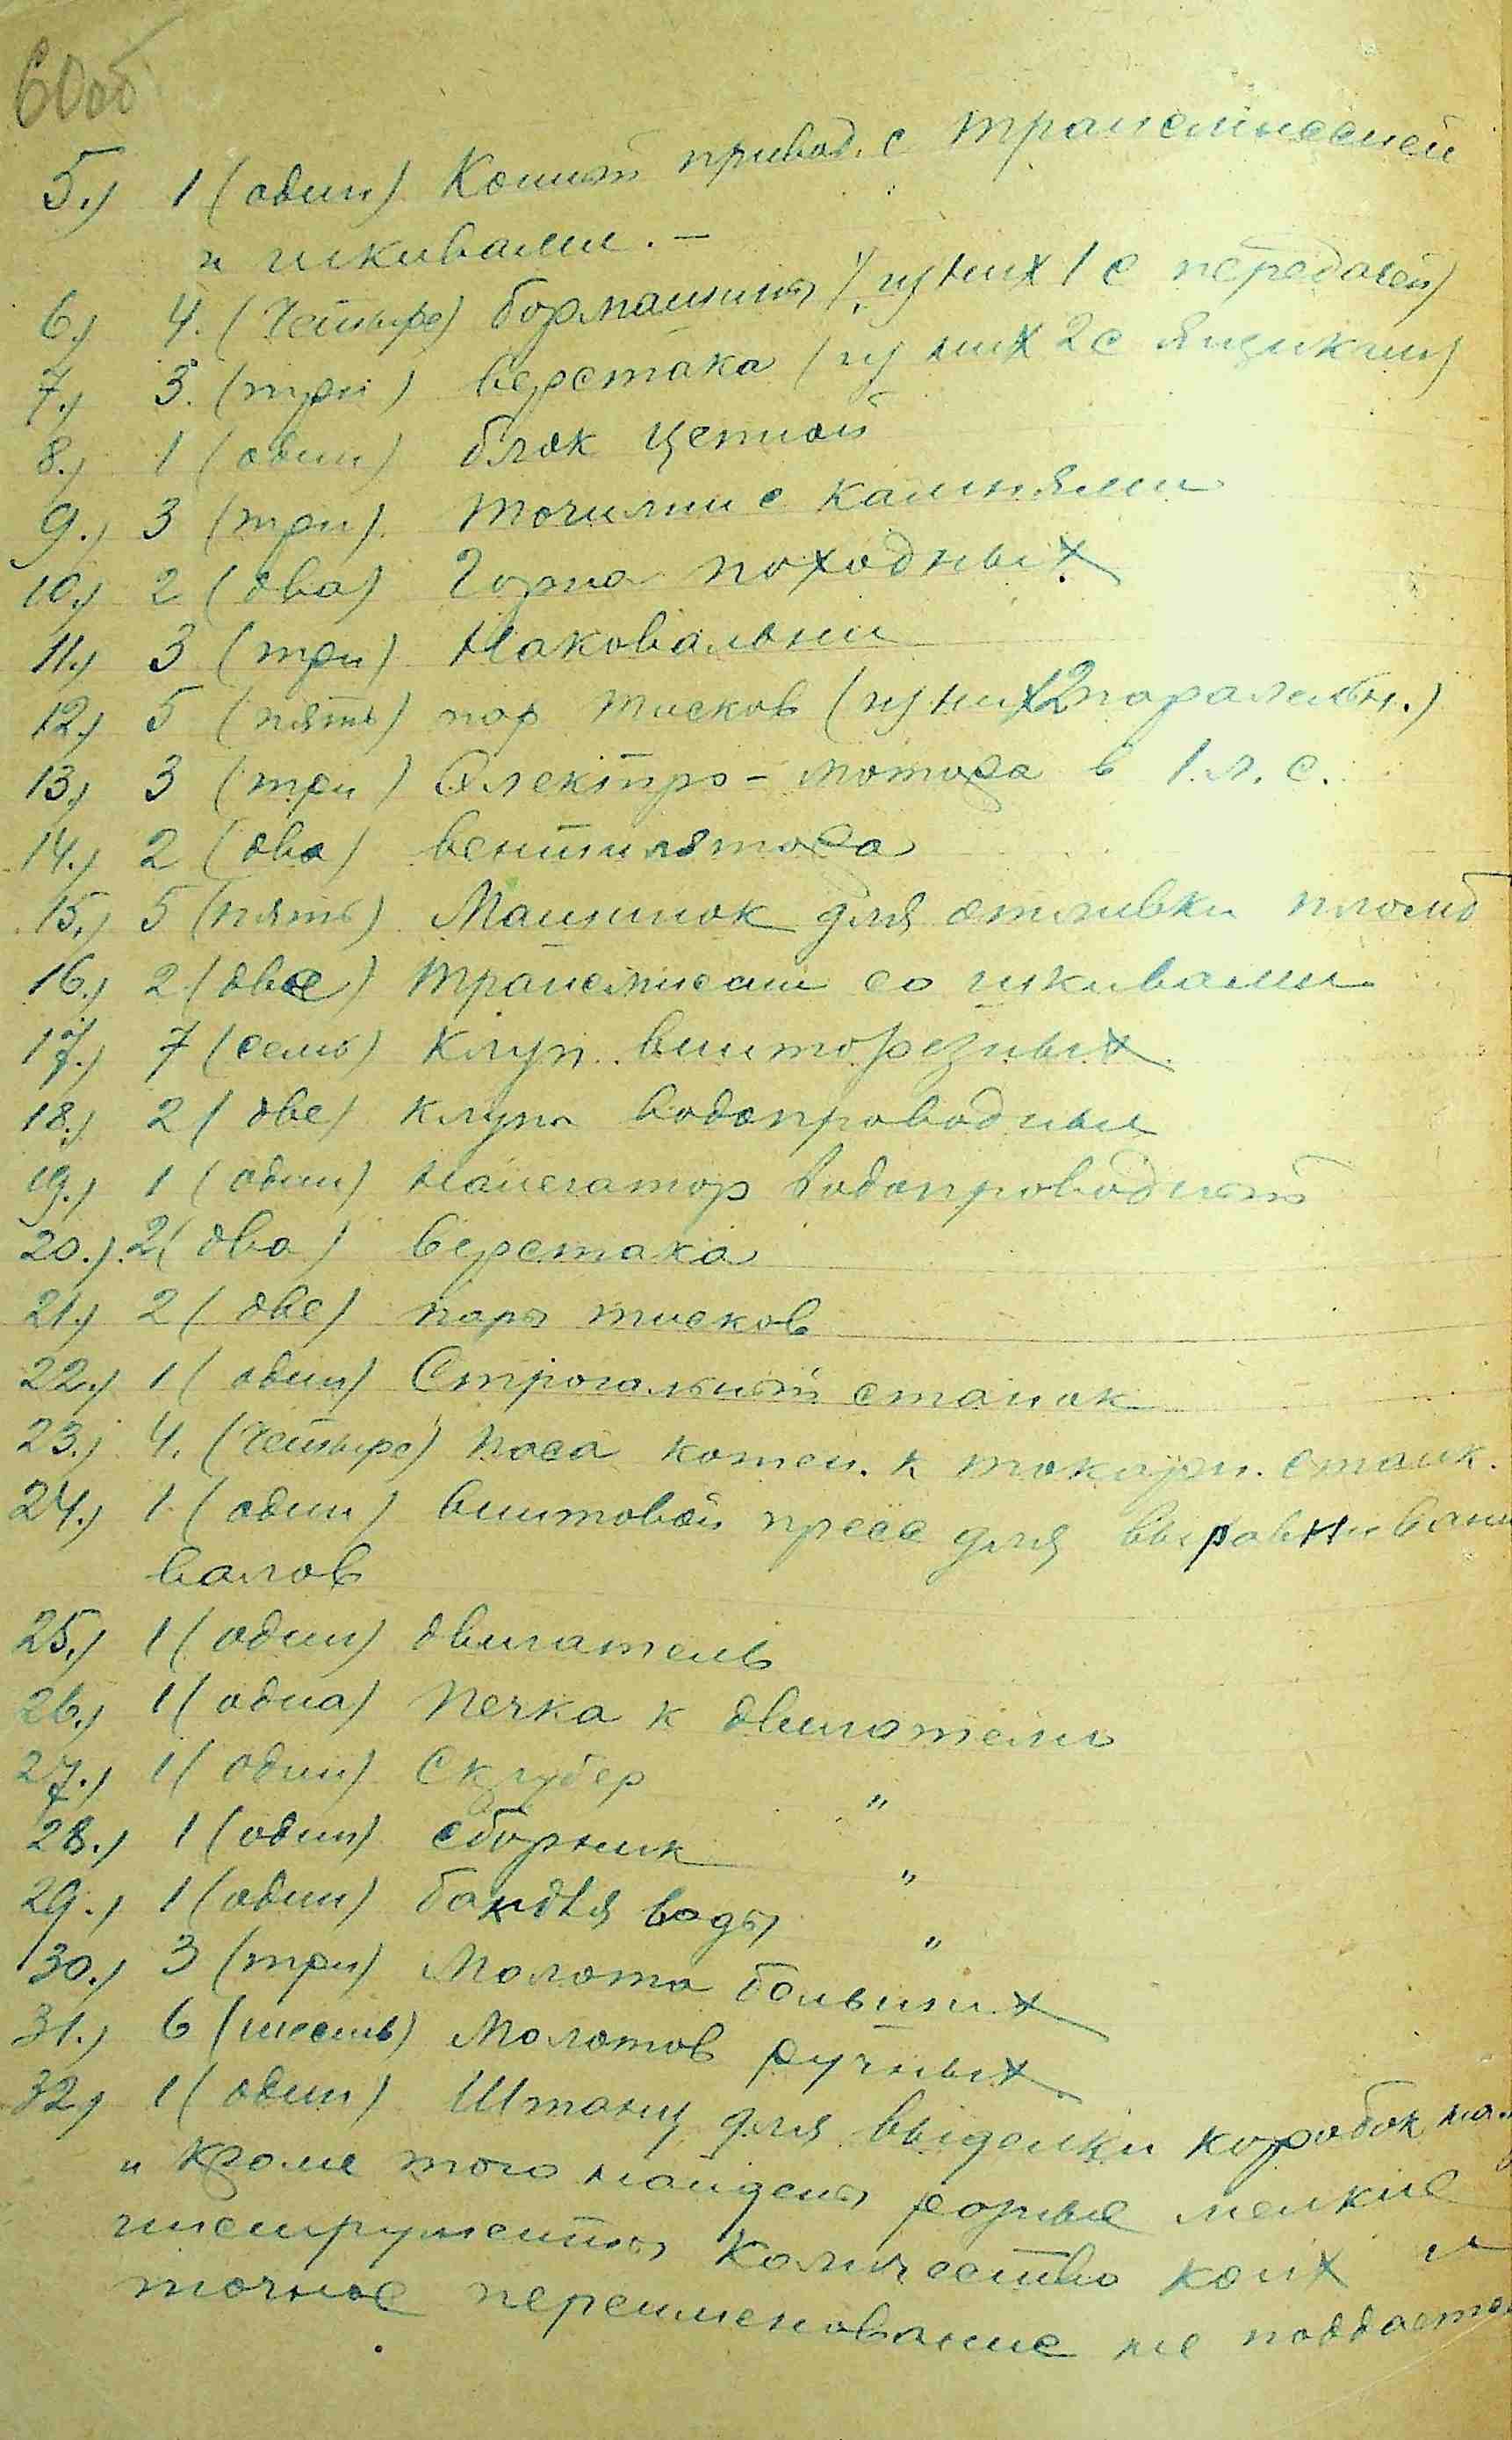 60об
5.) 1 (один) Конный привод. с трансмиссией
и шкивами. –
6.) 4. (Четыре) бормашины (из них 1 с передачей)
7.) 3. (три) верстака (из них 2 с ящиками)
8.) 1 (один) блок цепной
9.) 3 (три) точилки с камнями
10.) 2 (два) Горна походных
11.) 3 (три) Наковальни
12.) 5 (пять) пар тисков (из них 2 паралельн.)
13.) 3 (три) Электро-мотора в 1 л. с.
14.) 2 (два) вентилятора
15.) 5 (пять) Машинок для отливки пломб
16.) 2 (две) трансмиссии со шкивами
17.) 7 (семь) клуп. винторезных
18.) 2 (две) клупа водопроводных
19.) 1 (один) водопроводный
20.) 2 (два) верстака
21.) 2 (две) пары тисков
22.) 1 (один) Строгальный станок
23.) 4. (Четыре) к токарн. станк.
24.) 1 (один) винтовой пресс для выравнивани
валов
25.) 1 (один) двигатель
26.) 1 (одна) печка к двигателю
27.) 1 (один) Скрубер "
28.) 1 (один) сборник "
29.) 1 (один) бак для воды "
30.) 3 (три) Молота больших
31.) 6 (шесть) Молотов ручных
32) 1 (один) Штанц для выделки коробок
и кроме того найдены разные мелкие
инструменты количество коих и
точное переименование не поддается